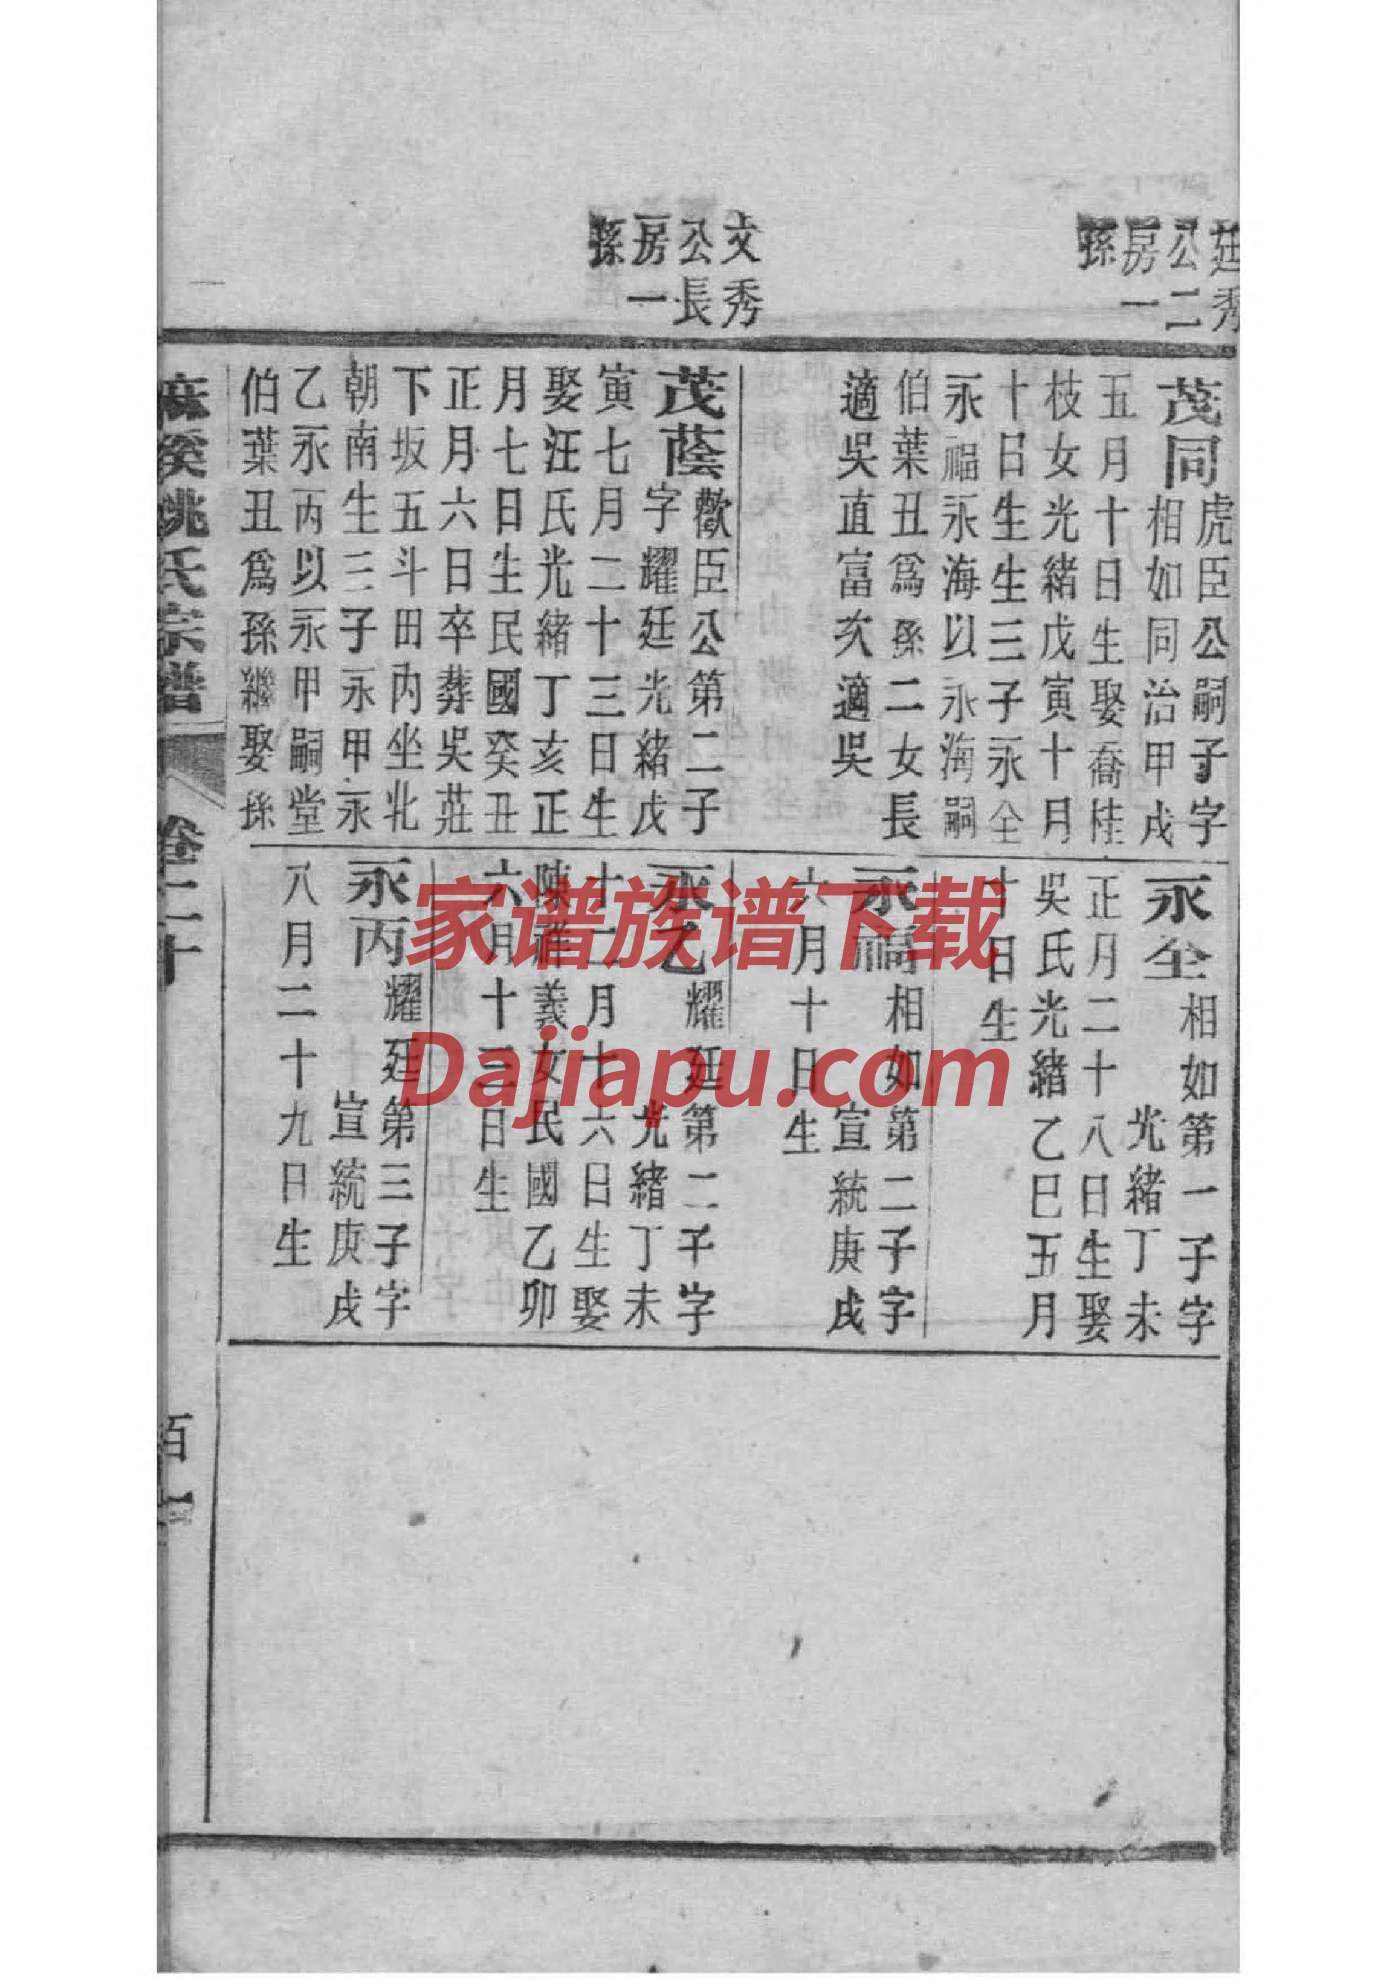 廷秀
公二
房一
孫
文秀
公長
房一
孫
茂同
虎臣公嗣子字
相如同治甲戌
五月十日生娶喬桂
枝女光緒戊寅十月
十日生生三子永全
永福永海以永海嗣
伯葉丑為孫二女長
適吳直富次適吳
茂蔭
歡臣公第二子
字耀廷光緒戊
寅七月二十三日生
娶汪氏光緒丁亥正
月七日生民國癸丑
正月六日卒葬吳莊
下坂五斗田內坐北
朝南生三子永甲永
乙永丙以永甲嗣堂
伯葉丑為孫繼娶孫
永全
相如第一子字
光緒丁未
正月二十八日生娶
吳氏光緒乙巳五月
十日生
永福
相如第二子字
宣統庚戌
六月十日生
永乙
耀廷第二子字
光緒丁未
十二月十六日生娶
陳祥義女民國乙卯
六月十三日生
永丙
耀廷第三子字
宣統庚戌
八月二十九日生
姚氏宗譜
卷二十
百一
家谱族谱下载
Dajiapu.com